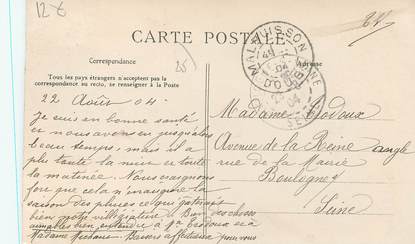 12 €
CARTE POSTALE
Correspondance
Adresse
Tous les pays étrangers n'acceptent pas la
correspondance au recto, se renseigner à la Poste
MALBUISSON
DOUBS
04
22 Août 04.
Je suis en bonne santé
nous avons eu jusqu'alors
beau temps, mais il a
plu toute la nuit et toute
la matinée. Nous craignons
fort que cela n'inaugure la
saison des pluies ce qui gâterait
bien notre villégiature. Bien des choses
aimables bien entendu à Mr
Madame Bons affectueux pour vous
Madame
Avenue de la Reine angle
rue de la Mairie
Boulogne
Seine